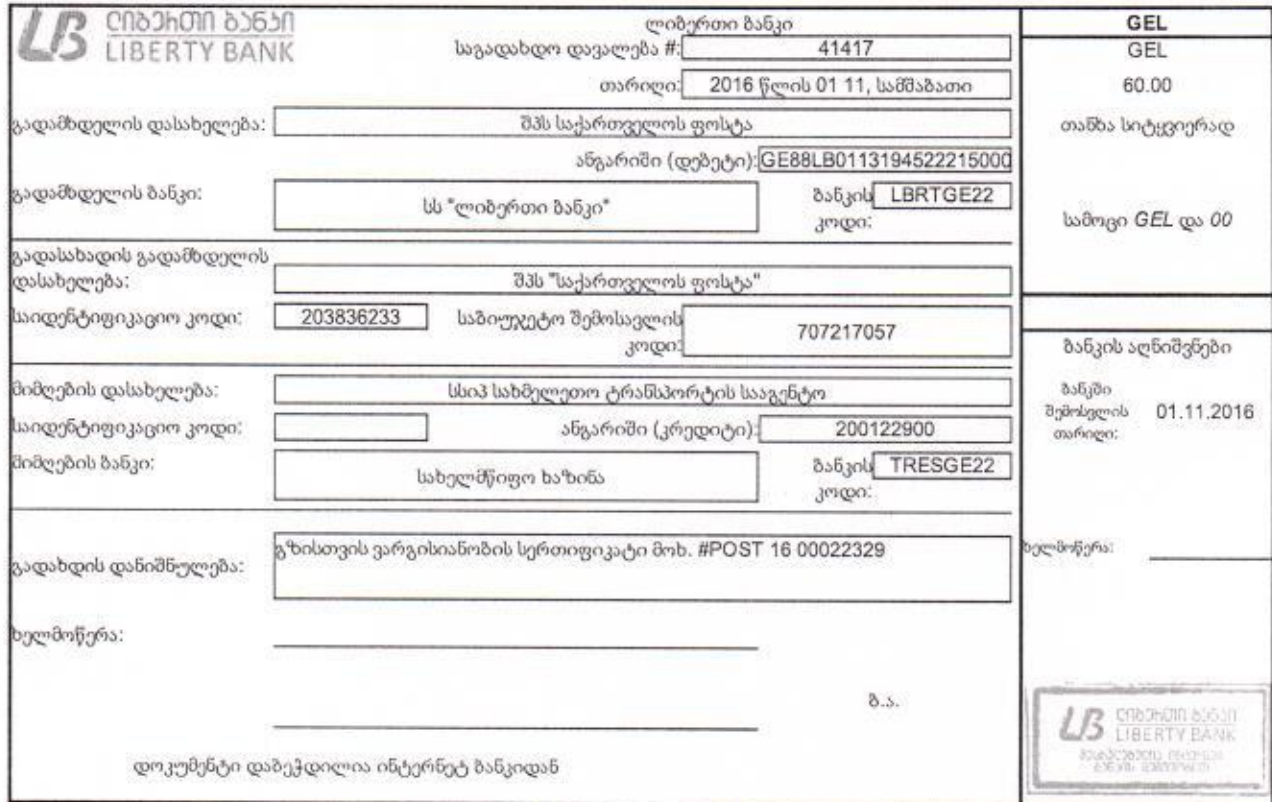 LB ლიბერთი ბანკი
LIBERTY BANK
ლიბერთი ბანკი
საგადახდო დავალება #: 41417
თარიღი: 2016 წლის 01 11, სამშაბათი
გადამხდელის დასახელება: შპს საქართველოს ფოსტა
ანგარიში (დებეტი): GE88LB0113194522215000
გადამხდელის ბანკი: სს "ლიბერთი ბანკი" ბანკის კოდი: LBRTGE22
გადასახადის გადამხდელის
დასახელება: შპს "საქართველოს ფოსტა"
საიდენტიფიკაციო კოდი: 203836233 საბიუჯეტო შემოსავლის
კოდი: 707217057
მიმღების დასახელება: სსიპ სახმელეთო ტრანსპორტის სააგენტო
საიდენტიფიკაციო კოდი: ანგარიში (კრედიტი): 200122900
მიმღების ბანკი: სახელმწიფო ხაზინა ბანკის კოდი: TRESGE22
გადახდის დანიშნულება: გზისთვის ვარგისიანობის სერთიფიკატი მოხ. #POST 16 00022329
ხელმოწერა:
ბ.ა.
დოკუმენტი დაბეჭდილია ინტერნეტ ბანკიდან
GEL
GEL
60.00
თანხა სიტყვიერად
სამოცი GEL და 00
ბანკის აღნიშვნები
ბანკში
შემოსვლის 01.11.2016
თარიღი:
ხელმოწერა:
LB ლიბერთი ბანკი
LIBERTY BANK